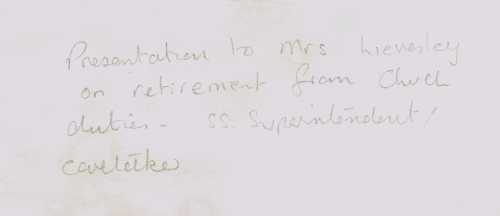 Presentation to Mrs Lieversley
on retirement from Church
duties - SS. Superintendent /
caretaker